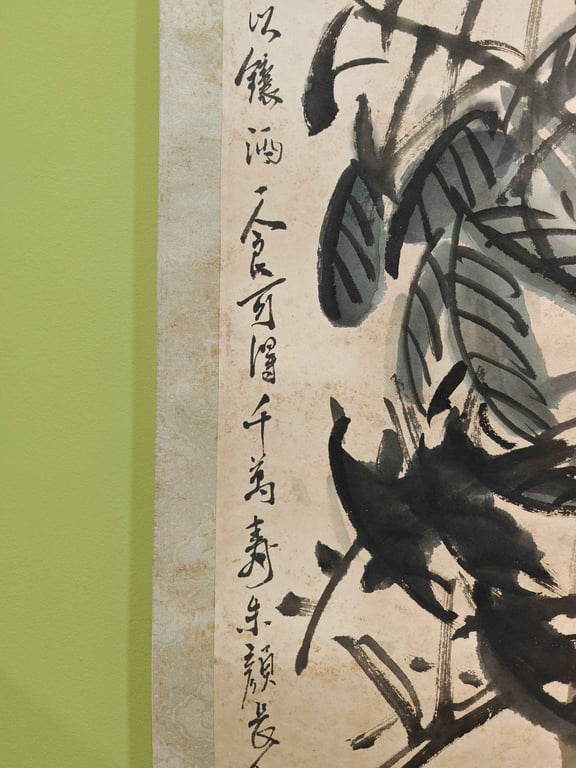 以釀酒一食可得千萬壽朱顏長